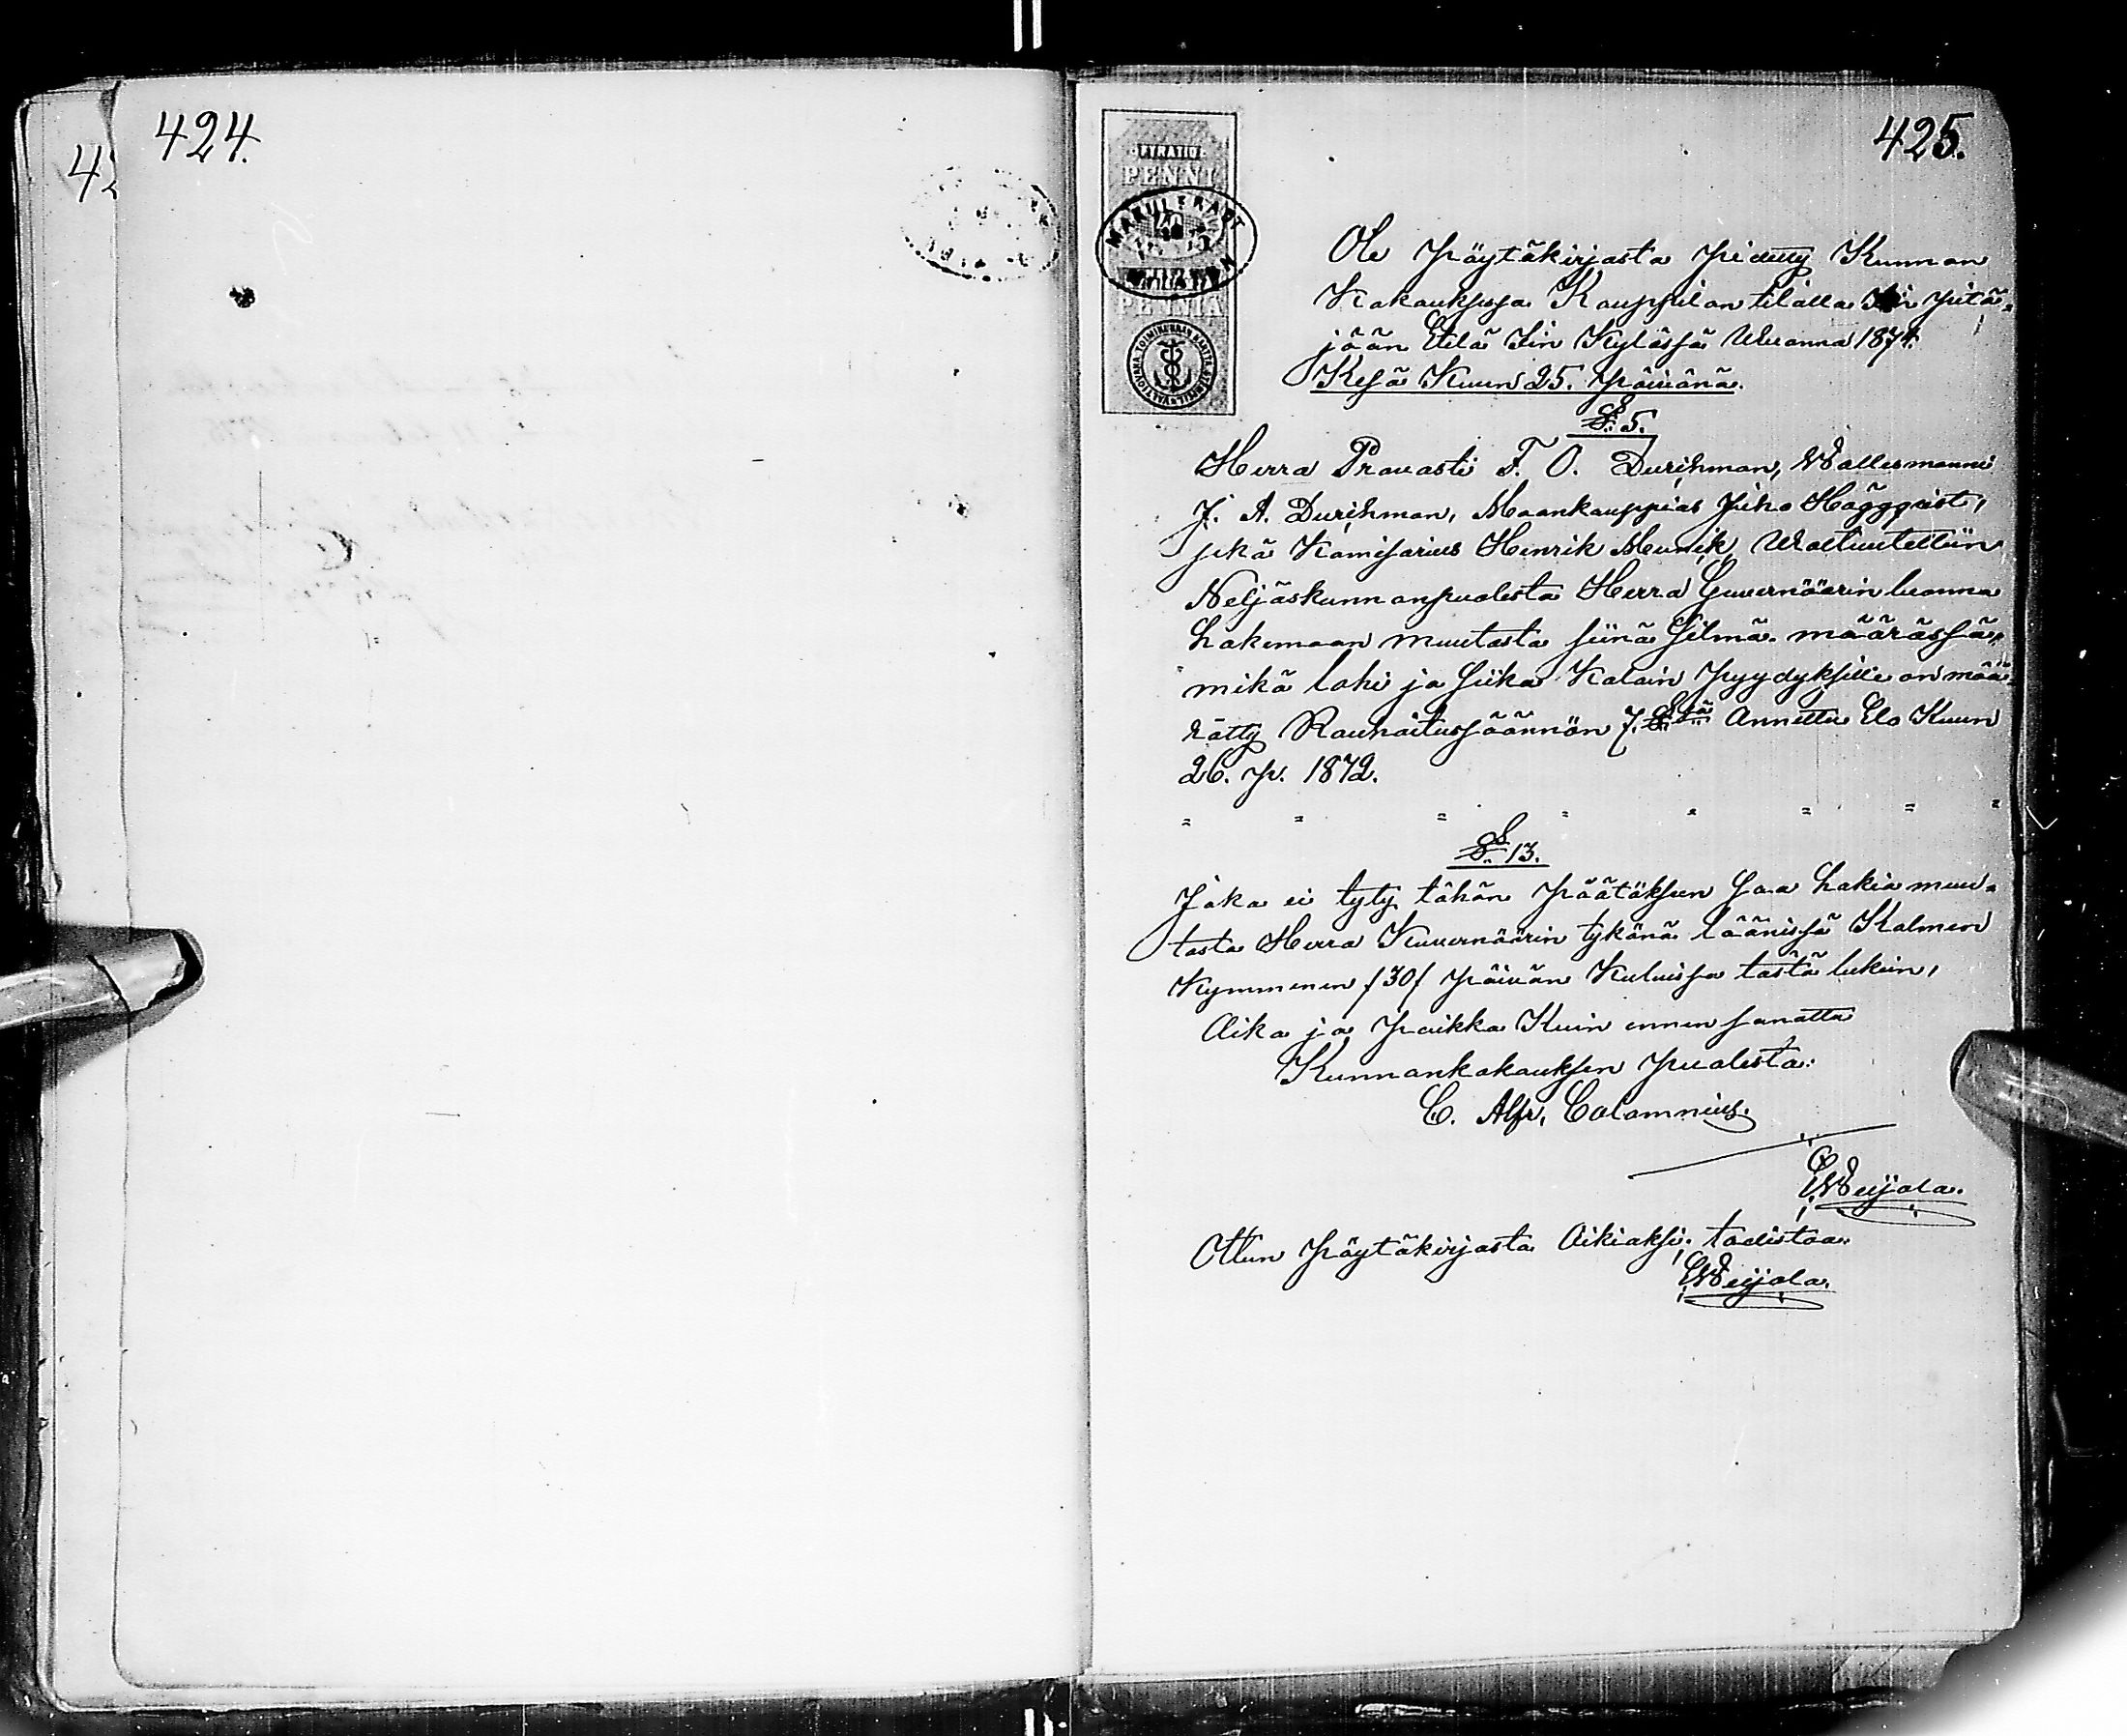 424.
42
425.
FYRATIO
PENNI
MAKULERADT
PENNIÄ
Ote Pöytäkirjasta Pidetty Kunnan
Kokouksessa Kauppilan tilalla Iin pitä„
jään Etelä Iin Kylässä Wuonna 1874.
Kesä Kuun 25. Päivänä.
§. 5.
Herra Provasti F. O. Durchman, Wallesmanni
J. A. Durchman, Maankauppias Juho Häggqvist,
sekä Komisarius Henrik Meurich, Waltuutettiin
Neljäskunnanpuolesta Herra Guvernöörin luonna
hakemaan muutosta siinä Silmä määrässä„
mikä lohi ja siika Kalain Pyydyksille on mää„
rätty Rauhoitussäännön 7. §ssä Annettu Elo Kuun
26. p. 1872.
„ „ „ „ „ „ „ „
§. 13.
Joka ei tyty tähän Päätöksen saa hakia muu„
tosta Herra Kuvernöörin tykönä läänissä Kolmen
Kymmenen /30/ Päivän Kuluissa tästä lukein,
Aika ja Paikka Kuin ennen sanottu
Kunnankokouksen Puolesta:
C. Alfr. Calamnius.
EWeijola.
Otteen Pöytäkirjasta Oikiaksi, todistaa:
EWeijola.